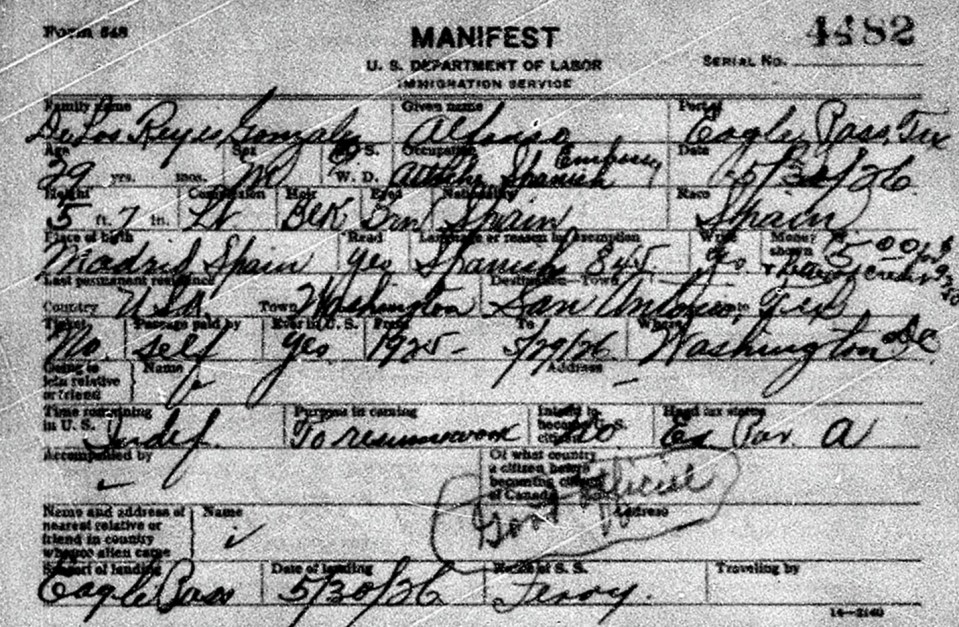 Form 548
MANIFEST
4482
U. S. DEPARTMENT OF LABOR
SERIAL No.
IMMIGRATION SERVICE
Family name Given name Port of
De Los Reyes Gonzalez Alfonso Eagle Pass, Tex
Age Sex S. Occupation Date
29 yrs. mos. M W. D. Attache Spanish Embassy 5/30/26
Height Complexion Hair Eyes Nationality Race
5 ft. 7 in. Lt Blk Brn Spain Spain
Place of birth Read Language or reason in exemption Write Money shown
Madrid Spain yes Spanish 845 yes 500
Last permanent residence Destination Town
Country USA Town Washington San Antonio, Tex
Ticket Passage paid by Ever in U. S. From To Where
No self yes 1925- 5/29/26 Washington DC
Going to join relative or friend Name Address
Time remaining in U. S. Purpose in coming Intend to become U. S. citizen Head tax status
Indef. To resume work No Ex Par A
Accompanied by
Of what country a citizen before becoming citizen of Canada
Govt official
Name and address of nearest relative or friend in country whence alien came Name Address
Seaport of landing Date of landing Name of S. S. Traveling by
Eagle Pass 5/30/26 Ferry.
14—2140